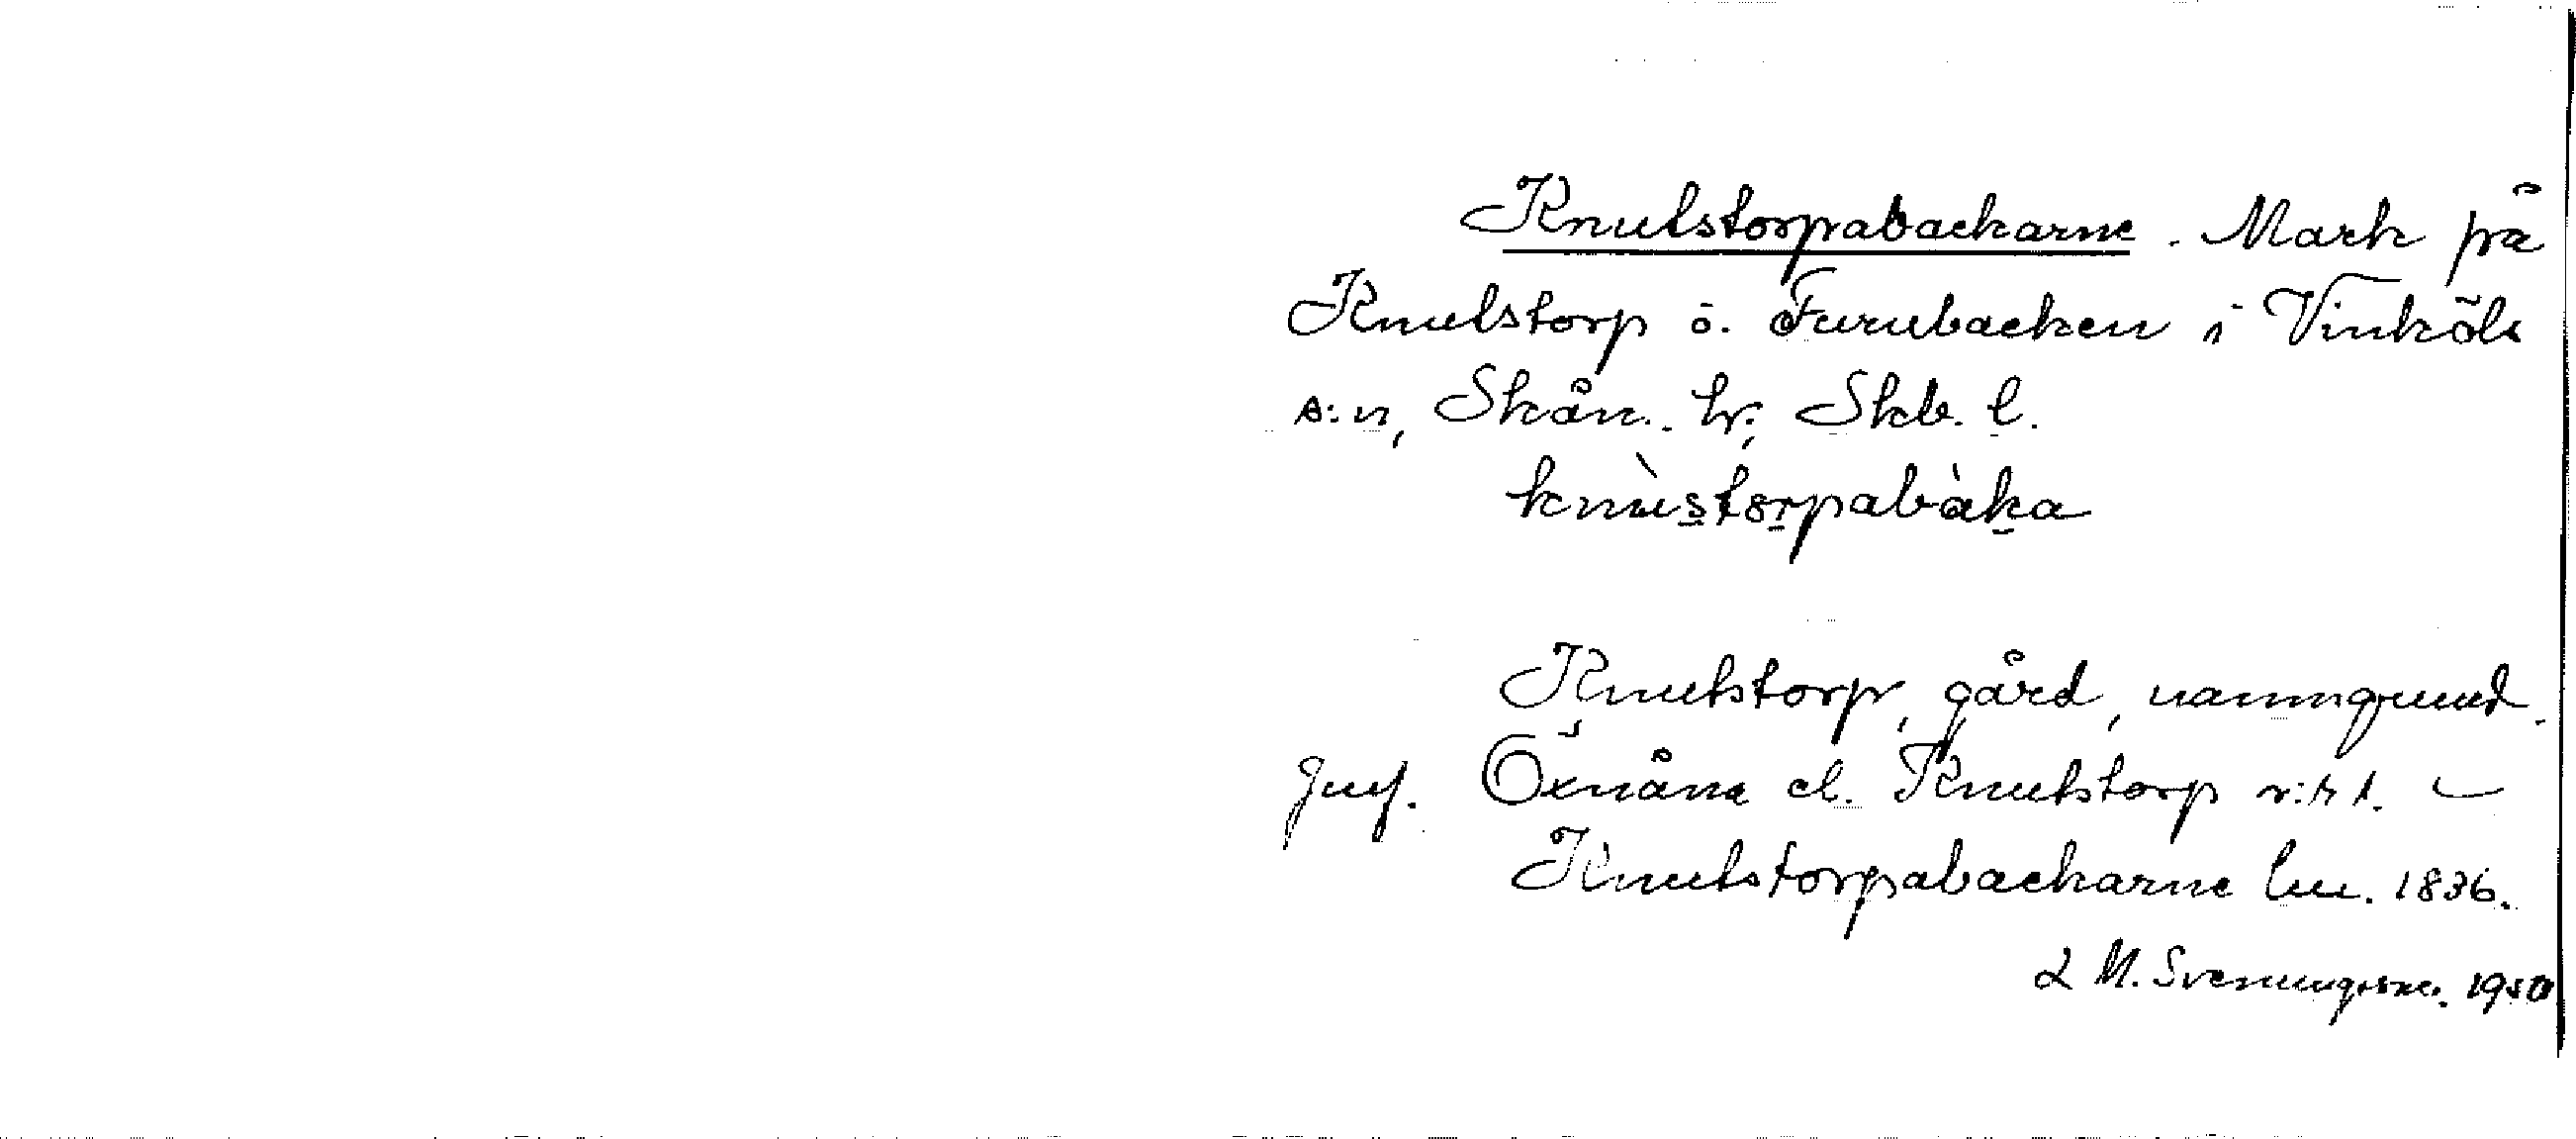 Knutstorpabackarne. Mark på
Knutstorp ö. Furubacken i Vinköls
s:n, Skån. hr, Skb. l.
knùstorpabàka
Knutstorp, gård, namngrund.
Jmf. Öxnåna el. Knutstorp r:r 1. –
Knutstorpabackarne lm. 1836.
2 M. Svenungsson. 1950